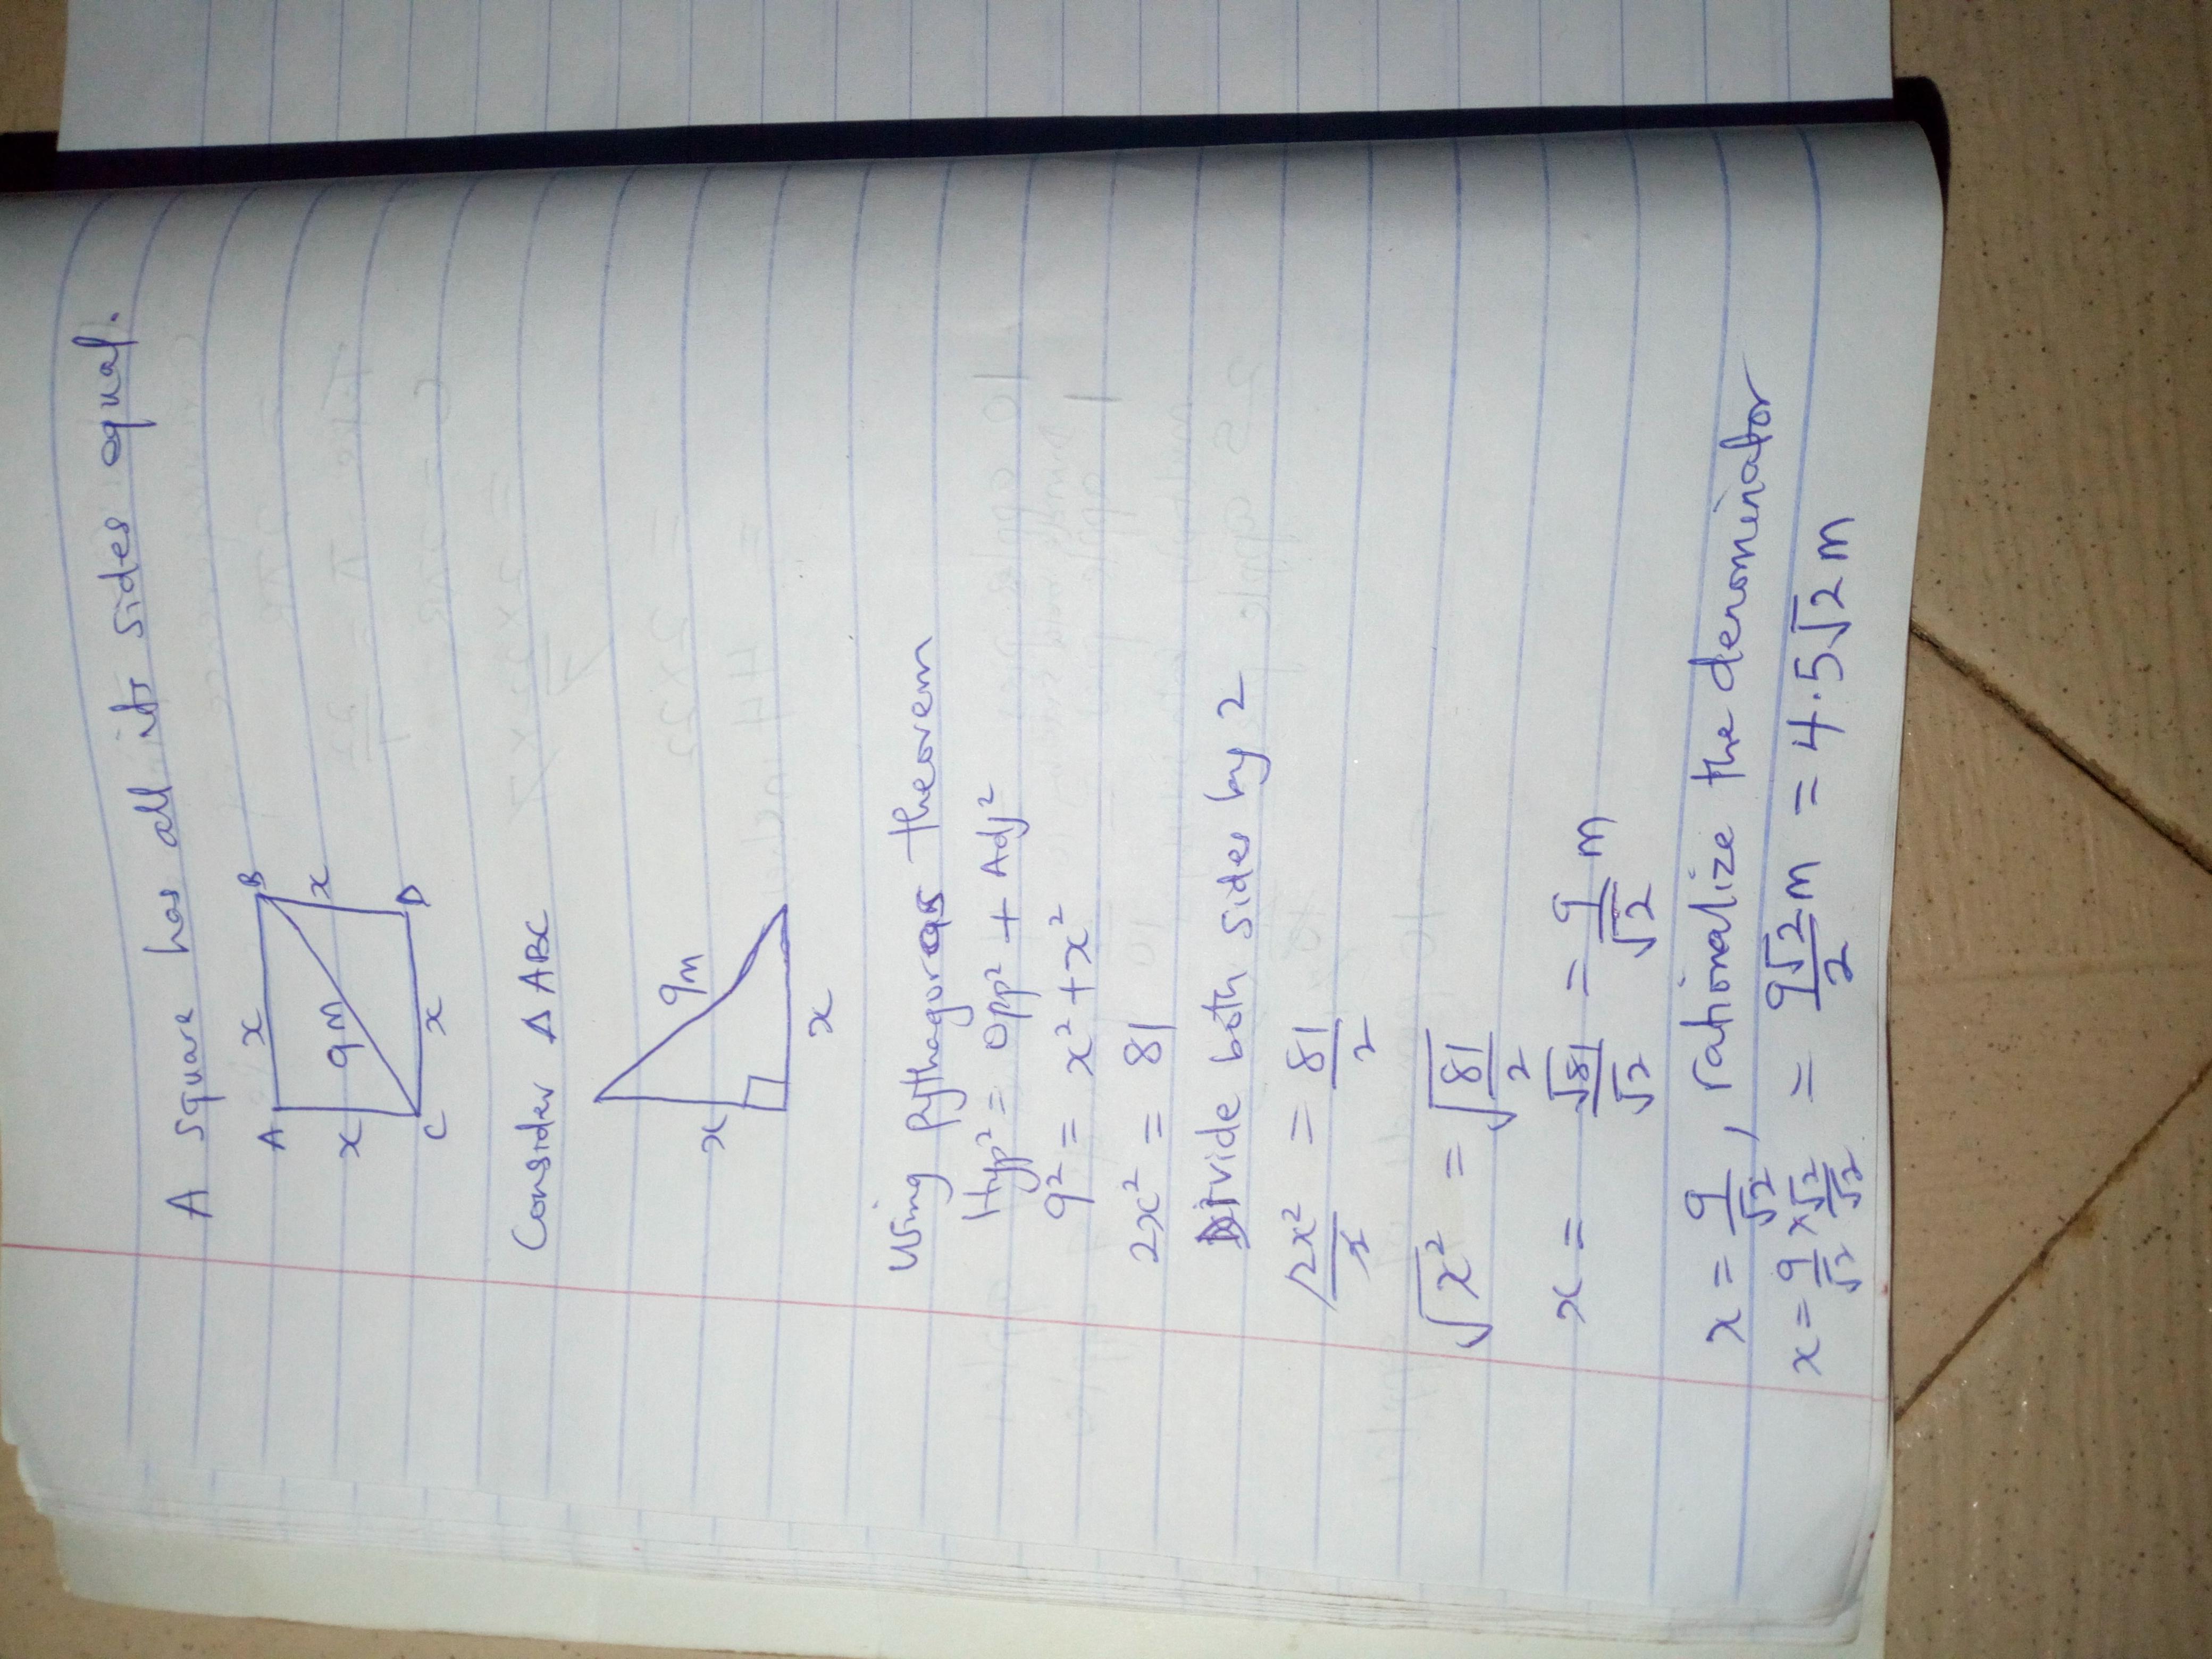 A square has all its sides equal.
A x B
x 9m x
C x D
Consider Δ ABC
x 9m
x
Using Pythagoras theorem
Hyp² = Opp² + Adj²
9² = x² + x²
2x² = 81
Divide both sides by 2
2x²/2 = 81/2
√x² = √81/2
x = √81/√2 = 9/√2 m
x = 9/√2, rationalize the denominator
x = 9/√2 × √2/√2 = 9√2/2 m = 4.5√2 m